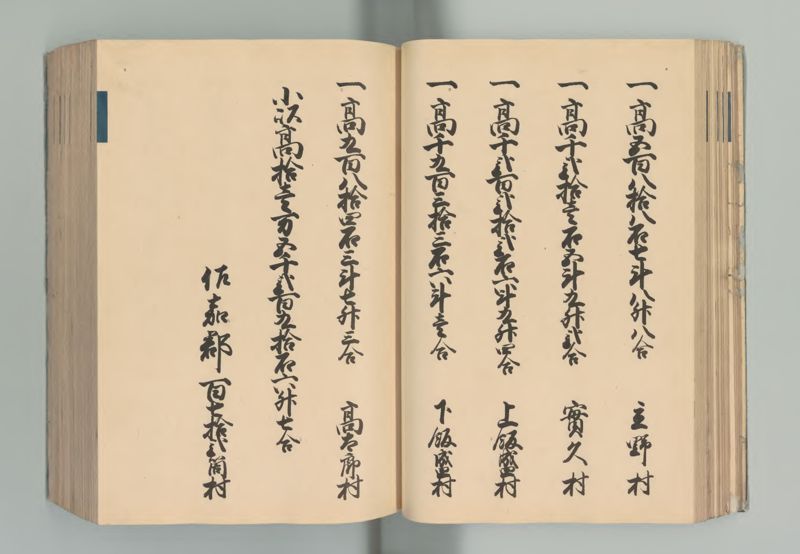 一高五百八拾八石七斗八升八合 立野村
一高千弐拾壱石五斗九升弐合 實久村
一高千弐百弐拾弐石六斗九升四合 上飯盛村
一高千九百三拾三石六斗壱合 下飯盛村
一高九百八拾四石三斗七升三合 高太郎村
小以高拾壱万五千弐百九拾石六升七合
佐嘉郡 百七拾弐箇村